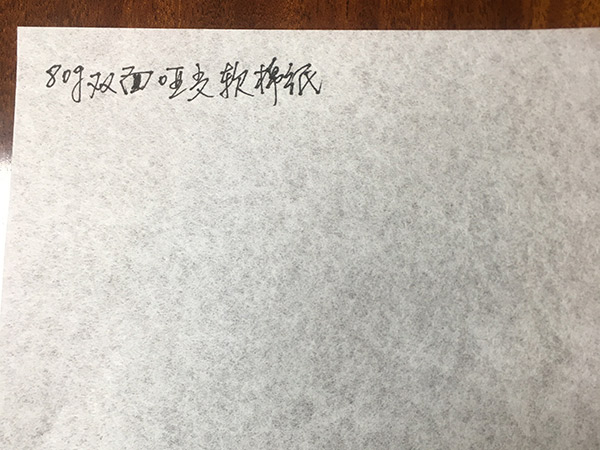 80g双面哑多软棉纸